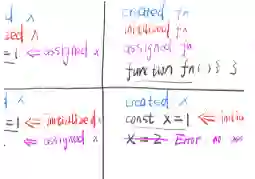 d x
zed x
= 1 ⇐ assigned x
created fn
initialized fn
assigned fn
function fn() { }
d x
= 1 ⇐ initialized x
⇐ assigned x
created x
const x = 1 ⇐ initi
x = 2 Error no